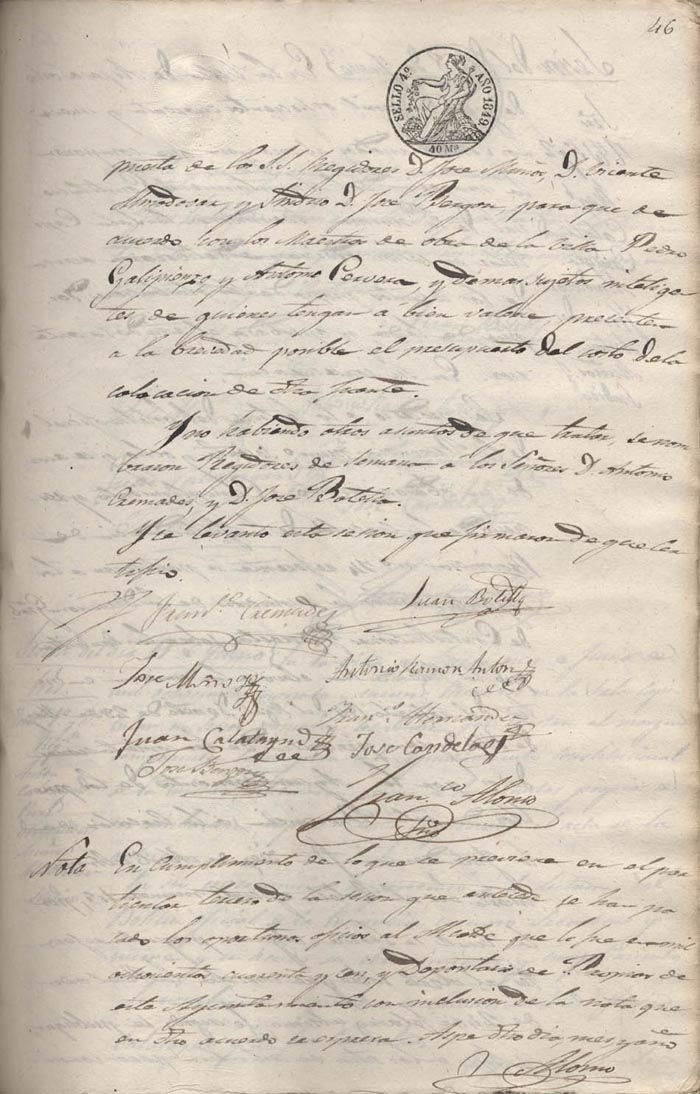 46
SELLO 4º AÑO 1849.
40 Ms
puesta de los S.S. Regidores D. Jose Muñoz, D. Vicente
Almodovar, y Sindico D. Jose Bergon, para que de
acuerdo con los Maestros de obra de la Villa Pedro
Galipienzo y Antonio Cervera, y demas sujetos intelige-
tes de quienes tengan a bien valerse presenten
a la brevedad posible el presupuesto del costo de la
colocacion de dha fuente.
Y no habiendo otros asuntos de que tratar, se nom
braron Regidores de semana a los Señores D. Antonio
Cremades, y D. Jose Botella.
Y se levantó esta sesion que firmaron de que cer
tifico.
Franco. Cremades
Juan Botella
Jose Muñoz
Antonio Ramon Anton
Franco. Hernandez
Juan Calatayud
Jose Candela
Jose Bergon
Franco. Alonso
Srio
Nota En cumplimiento de lo que se previene en el par
ticular tercero de la sesion que antecede se han pa
sado los oportunos oficios al Alcalde que lo fue en mil
ochocientos cuarenta y seis, y Depositario de Propios de
este Ayuntamiento con inclusion de la nota que
en dho acuerdo se espresa. Aspe dho dia mes y año
Alonso